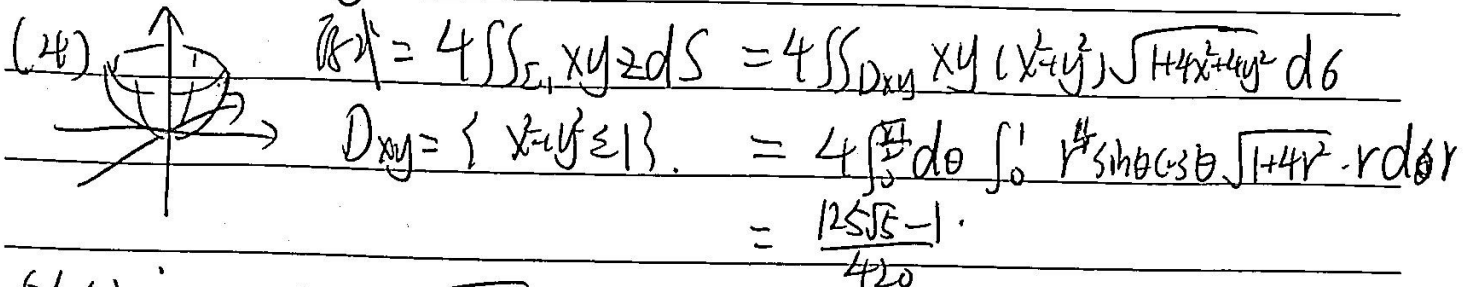 (4) 原式 = 4∬_{Σ₁} xyz dS = 4∬_{Dxy} xy (x²+y²) √(1+4x²+4y²) dσ
Dxy = { x²+y² ≤ 1 }. = 4∫_0^{π/2} dθ ∫_0^1 r⁴ sinθcosθ √(1+4r²) · r dr
= (125√5 − 1)/420 .